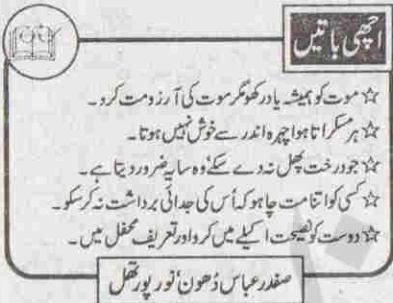 اچھی باتیں
☆ موت کو ہمیشہ یاد رکھو مگر موت کی آرزو مت کرو۔
☆ ہر مسکراتا ہوا چہرہ اندر سے خوش نہیں ہوتا۔
☆ جو درخت پھل نہ دے سکے وہ سایہ ضرور دیتا ہے۔
☆ کسی کو اتنا مت چاہو کہ اُس کی جدائی برداشت نہ کر سکو۔
☆ دوست کو نصیحت اکیلے میں کرو اور تعریف محفل میں۔
صفدر عباس ڈھون، نور پور تھل